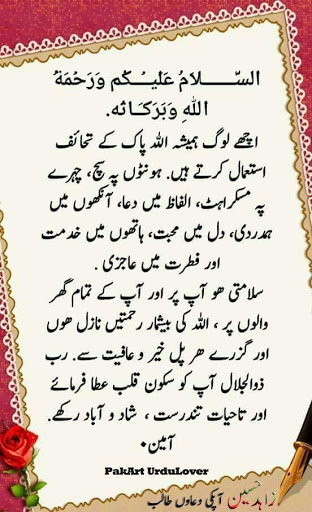 السّلامُ عَلَيْكُم وَرَحْمَةُ
اللهِ وَبَرَكَاتُه.
اچھے لوگ ہمیشہ اللہ پاک کے تحائف
استعمال کرتے ہیں. ہونٹوں پہ سچ، چہرے
پہ مسکراہٹ، الفاظ میں دعا، آنکھوں میں
ہمدردی، دل میں محبت، ہاتھوں میں خدمت
اور فطرت میں عاجزی .
سلامتی ھو آپ پر اور آپ کے تمام گھر
والوں پر ، اللہ کی بیشمار رحمتیں نازل ھوں
اور گزرے ھر پل خیر و عافیت سے. رب
ذوالجلال آپ کو سکون قلب عطا فرمائے
اور تاحیات تندرست ، شاد و آباد رکھے.
آمین.
PakArt UrduLover
زاہد حسین آپکی دعاوں طالب